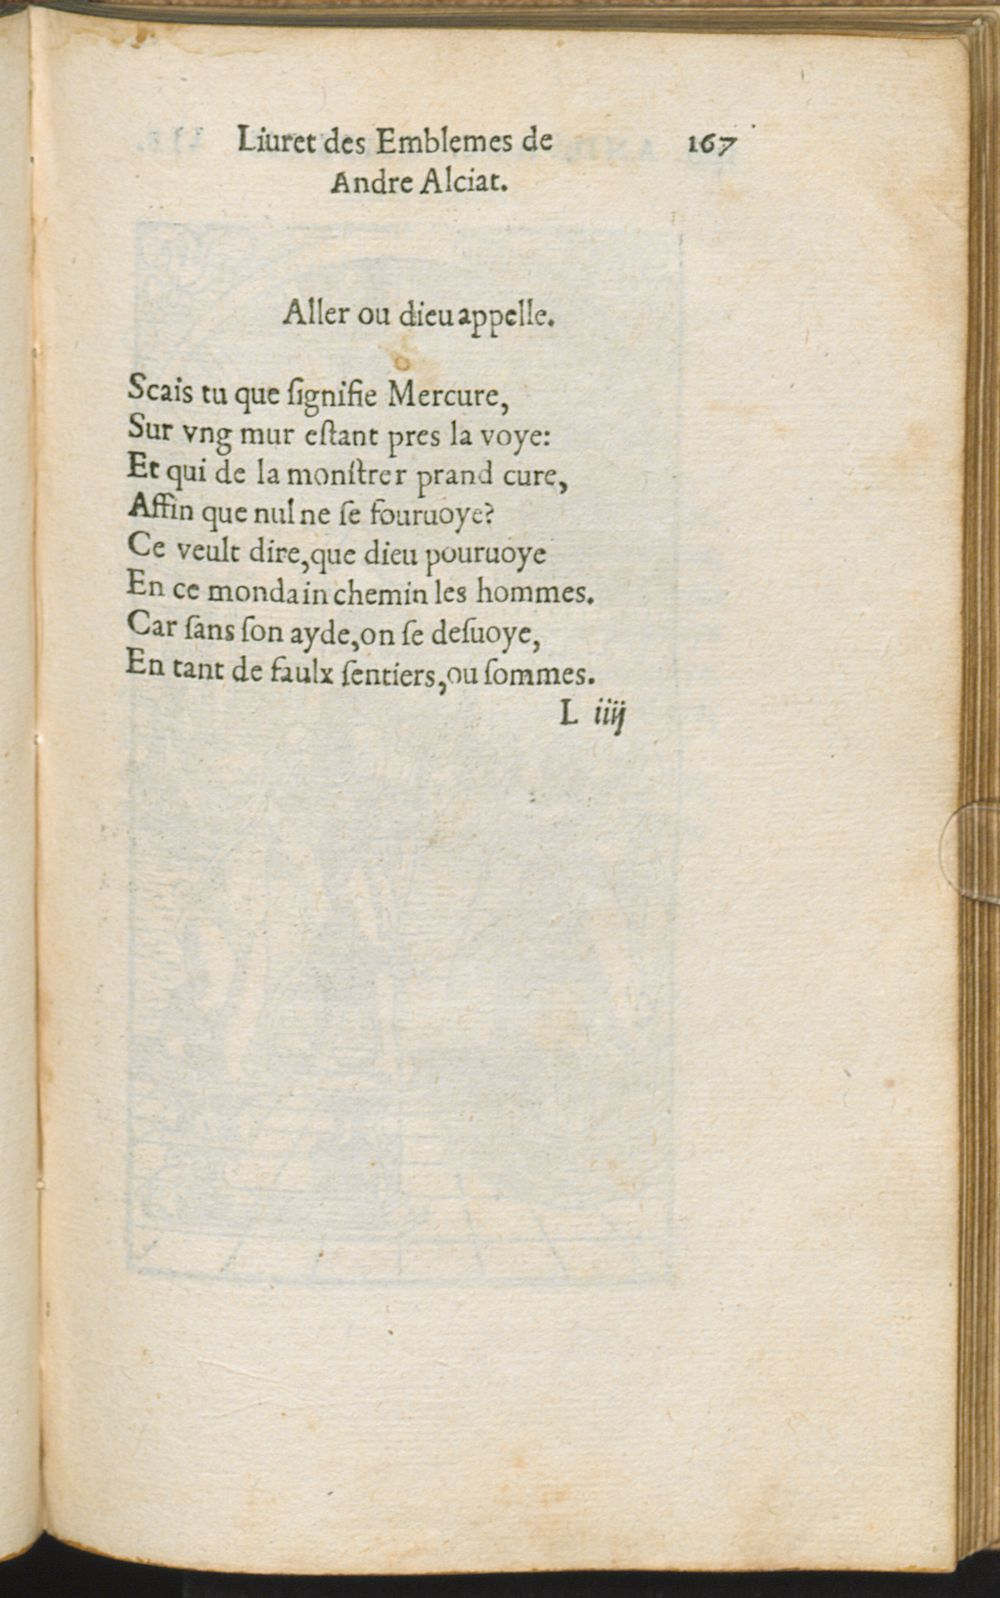 Liuret des Emblemes de 167
Andre Alciat.
Aller ou dieu appelle.
Scais tu que ſignifie Mercure,
Sur vng mur eſtant pres la voye:
Et qui de la monſtrer prand cure,
Affin que nul ne ſe fouruoye?
Ce veult dire, que dieu pouruoye
En ce mondain chemin les hommes.
Car ſans ſon ayde, on ſe deſuoye,
En tant de faulx ſentiers, ou ſommes.
L iiij